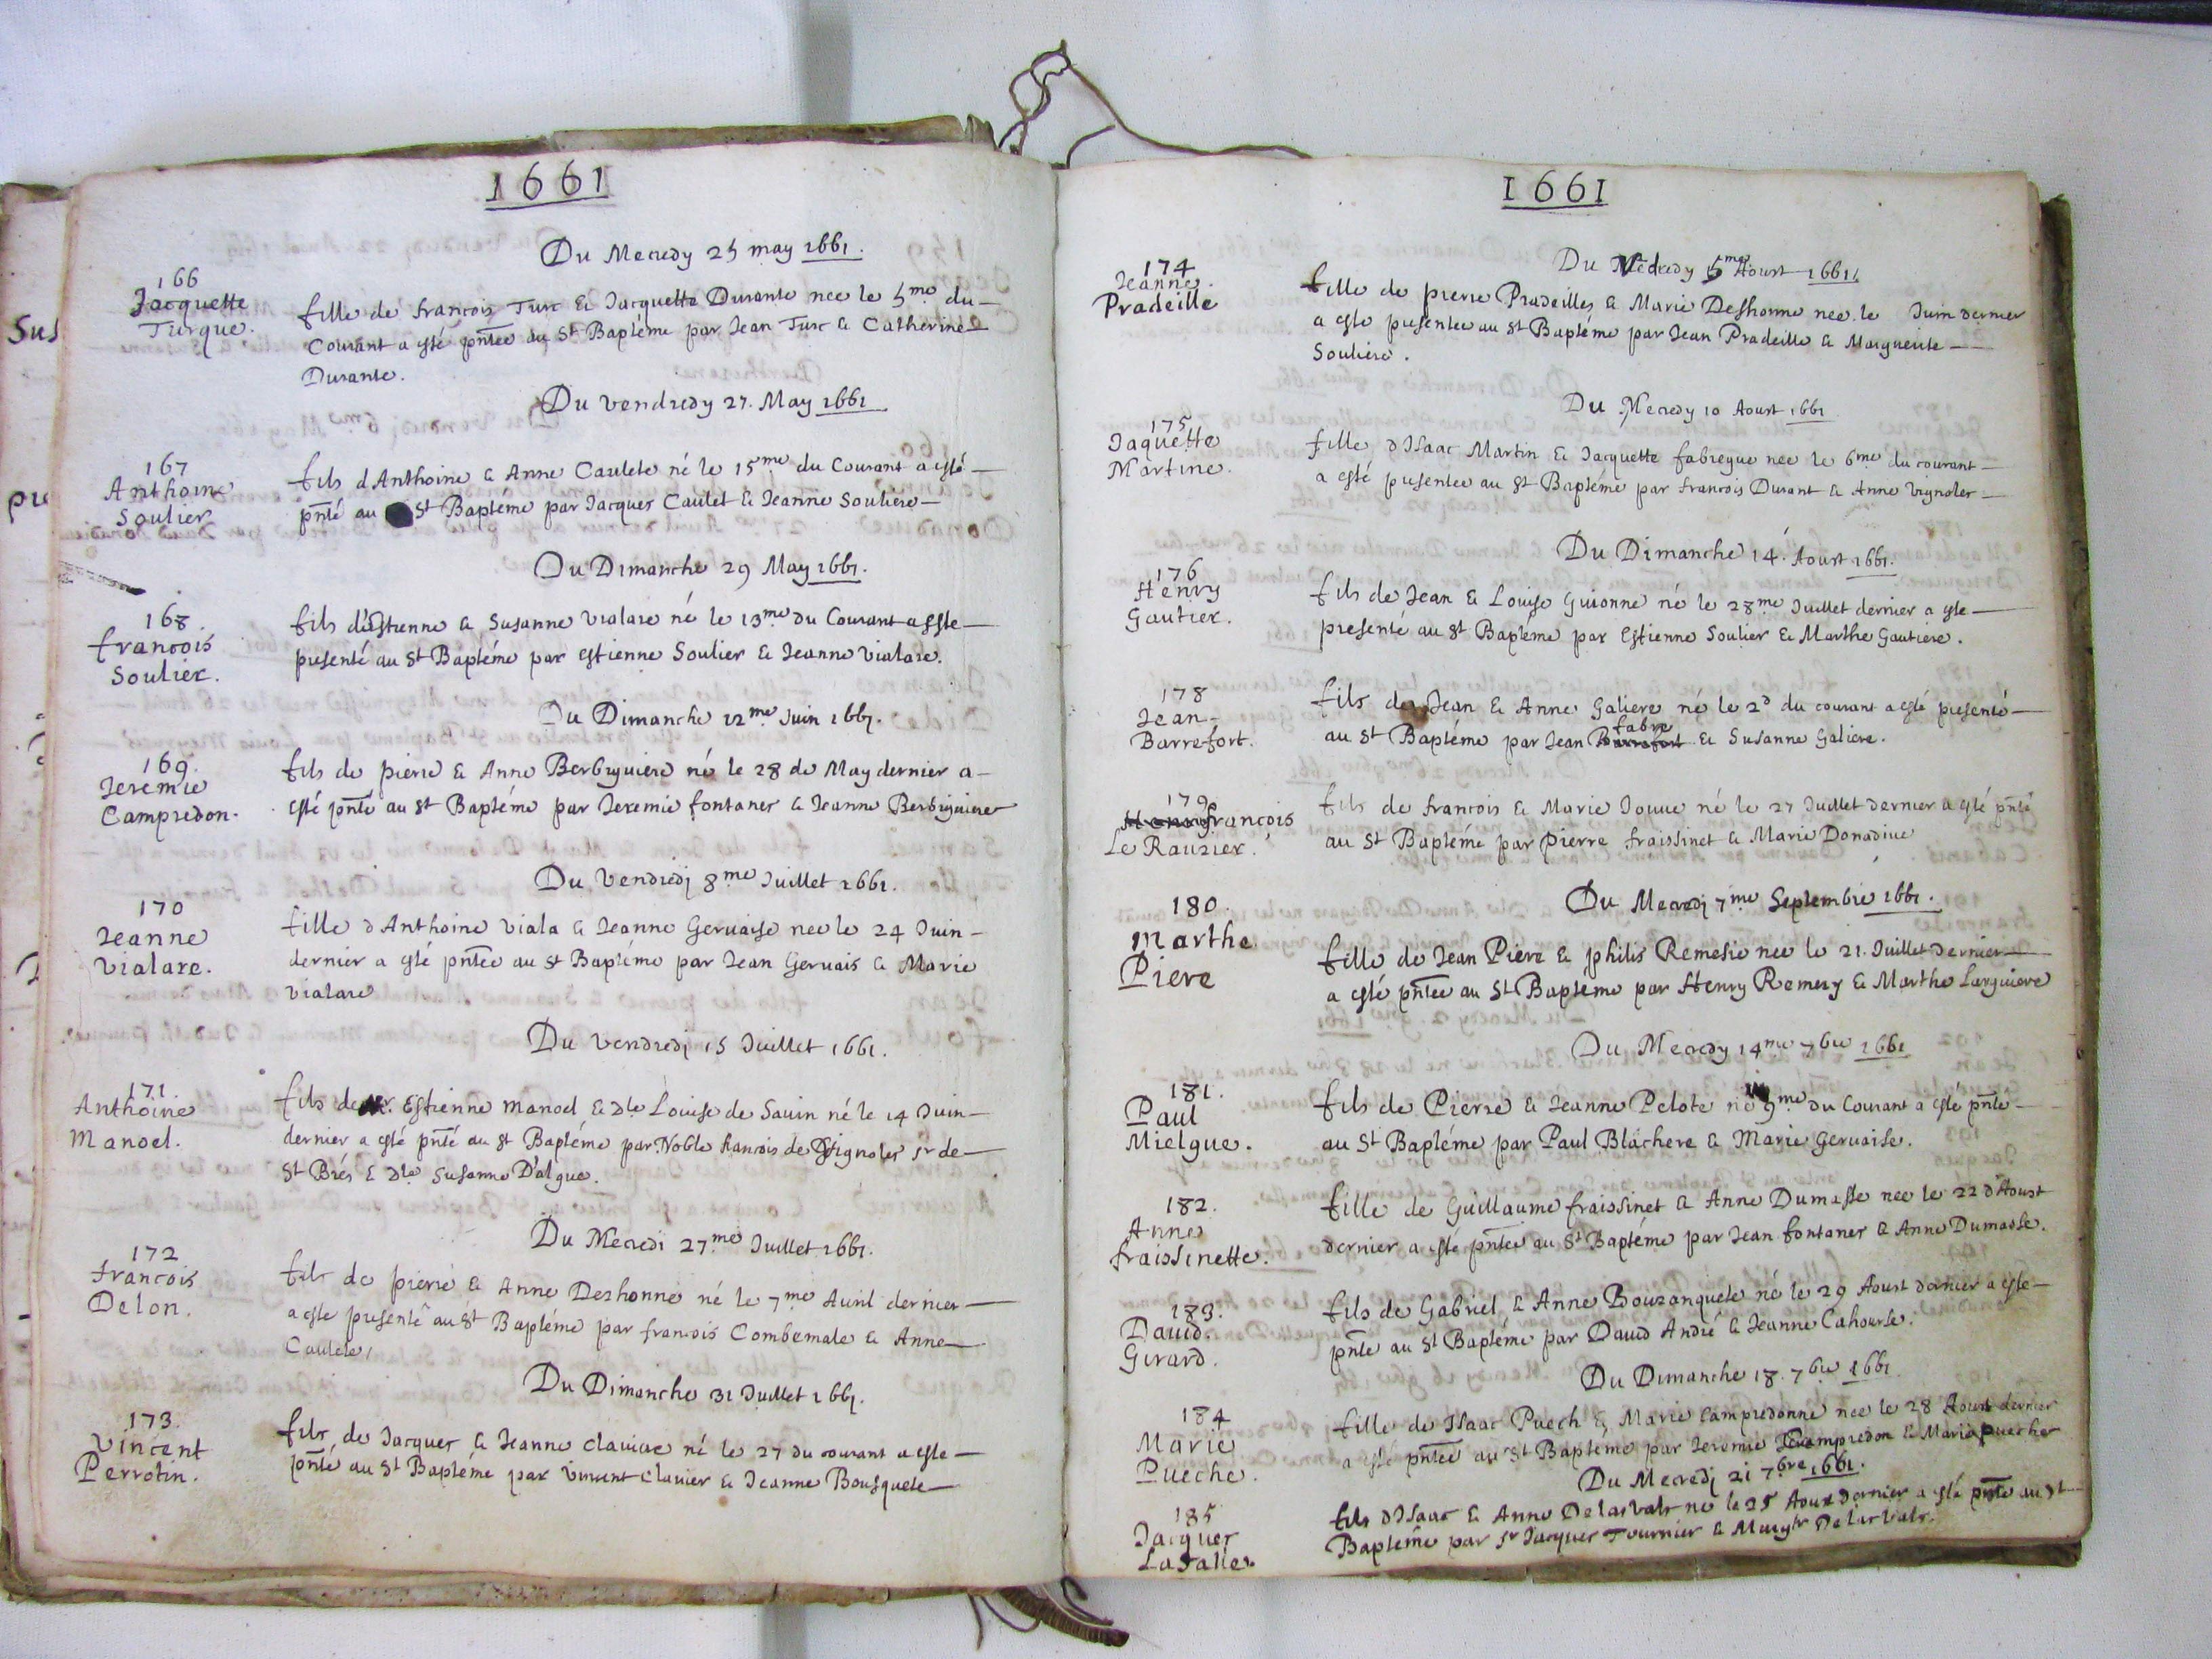 1661
Du Mecredy 25 may 1661.
166
Jacquette
Turque.
fille de françois Turc & Jacquette Durante nee le 5me du
Courant a esté pñtee au St Baptéme par Jean Turc & Catherine
Durante.
Du vendredy 27. May 1661
167
Anthoine
Soulier
fils d Anthoine & Anne Caulete né le 15me du Courant a esté
pñté au St Baptéme par Jacques Caulet & Jeanne Souliere
Du Dimanche 29 May 1661.
168.
francois
Soulier.
fils d'Estienne & Susanne vialare né le 13me du Courant a este
presenté au St Baptéme par estienne Soulier & Jeanne vialare.
Du Dimanche 12me Juin 1661.
169.
Jeremie
Campredon.
fils de pierre & Anne Berbiguiere né le 28 de May dernier a
esté pñté au St Baptéme par Jeremie fontanes & Jeanne Berbiguiere
Du Vendredj 8me Juillet 1661.
170
Jeanne
vialare.
fille d Anthoine viala & Jeanne Gervaise nee le 24 Juin
dernier a esté pñtee au St Baptéme par Jean Gervais & Marie
vialare
Du vendredj 15 Juillet 1661.
171.
Anthoine
Manoel.
fils de Estienne Manoel & dle Louise de Sauin né le 14 Juin
dernier a esté pñté au St Baptéme par Noble francois de Vignoles sr de
St Brés & dle Susanne D'algue.
Du Mecredi 27me Juillet 1661.
172
francois
Delon.
fils de pierre & Anne Deshonne né le 7me Auril dernier
a este presenté au St Baptéme par francois Combemale & Anne
Caulete,
Du Dimanche 31 Juillet 1661.
173.
Vincent
Perrotin.
fils de Jacques & Jeanne claviere né le 27 du courant a este
pñté au St Baptéme par Vincent Clavier & Jeanne Bousquete
1661
Du 5me Aoust 1661.
174
Jeanne.
Pradeille
fille de pierre Pradeilles & Marie Deshonne nee le Juin dernier
a este presentee au St Baptéme par Jean Pradeille & Marguerite
Souliere.
Du Mecredy 10 Aoust 1661
175
Jaquette
Martine.
fille d Isaac Martin & Jacquette fabregue nee le 6me du courant
a esté presentee au St Baptéme par francois Durant & Anne Vignoles
Du Dimanche 14. Aoust 1661.
176
Henry
Gautier.
fils de Jean & Louise Guionne né le 28me Juillet dernier a este
presenté au St Baptéme par Estienne Soulier & Marthe Gautiere.
178
Jean
Barrefort.
fils de Jean & Anne Galiere né le 2d du courant a esté presenté
au St Baptéme par Jean Barrefort fabre & Susanne Galiere.
179
Henry francois
Le Rauzier.
fils de francois & Marie Jouue né le 27 Juillet dernier a esté pñté
au St Baptéme par Pierre fraissinet & Marie Donadiue
Du Mecredj 7me Septembre 1661.
180.
Marthe
Piere
fille de Jean Piere & philis Remesie nee le 21. Juillet dernier
a esté pñtee au St Baptéme par Henry Remesy & Marthe Larguiere
Du Mecredy 14me 7bre 1661
181.
Paul
Mielgue.
fils de Pierre & Jeanne Pelote né 9me du Courant a esté pñte
au St Baptéme par Paul Blachere & Marie Gervaise.
182.
Anne
fraissinette.
fille de Guillaume fraissinet & Anne Dumasse nee le 22 d'Aoust
dernier a esté pñtee au St Baptéme par Jean fontanes & Anne Dumasse.
183.
Dauid.
Girard.
fils de Gabriel & Anne Bouzanquete né le 29 Aoust dernier a este
pñte au St Baptéme par Dauid André & Jeanne Cahourse.
Du Dimanche 18. 7bre 1661
184
Marie
Pueche.
fille de Isaac Puech & Marie Campredonne nee le 28 Aoust dernier
a esté pñtee au St Baptéme par Jeremie Campredon & Marie Pueche
Du Mecredj 21 7bre 1661.
185
Jacques
Lasalle.
fils d Isaac & Anne Delasvals né le 25 Aoust dernier a esté pñte au St
Baptéme par sr Jacques Tournier & Delasvals.